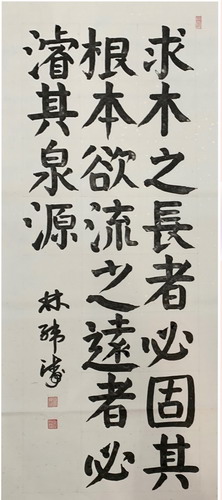 求木之長者必固其
根本欲流之遠者必
濬其泉源
林